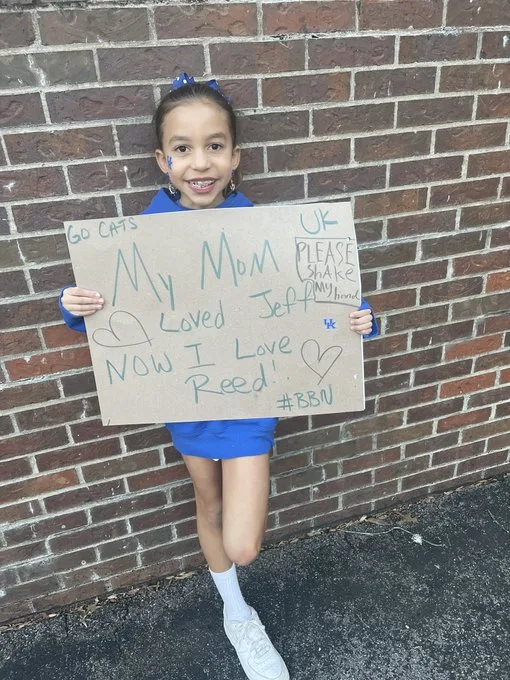 GO CATS
UK
PLEASE
ShAke
My hand
My MoM
Loved Jeff
UK
NOW I Love
Reed!
#BBN